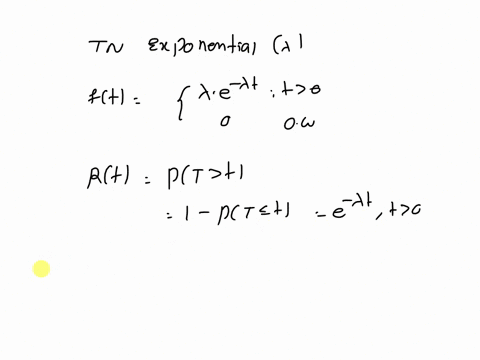 T~ Exponential (λ)
f(t) = { λ.e^{-λt} ; t>0
0 0.ω
R(t) = P(T>t)
= 1 - P(T≤t) = e^{-λt}, t>0